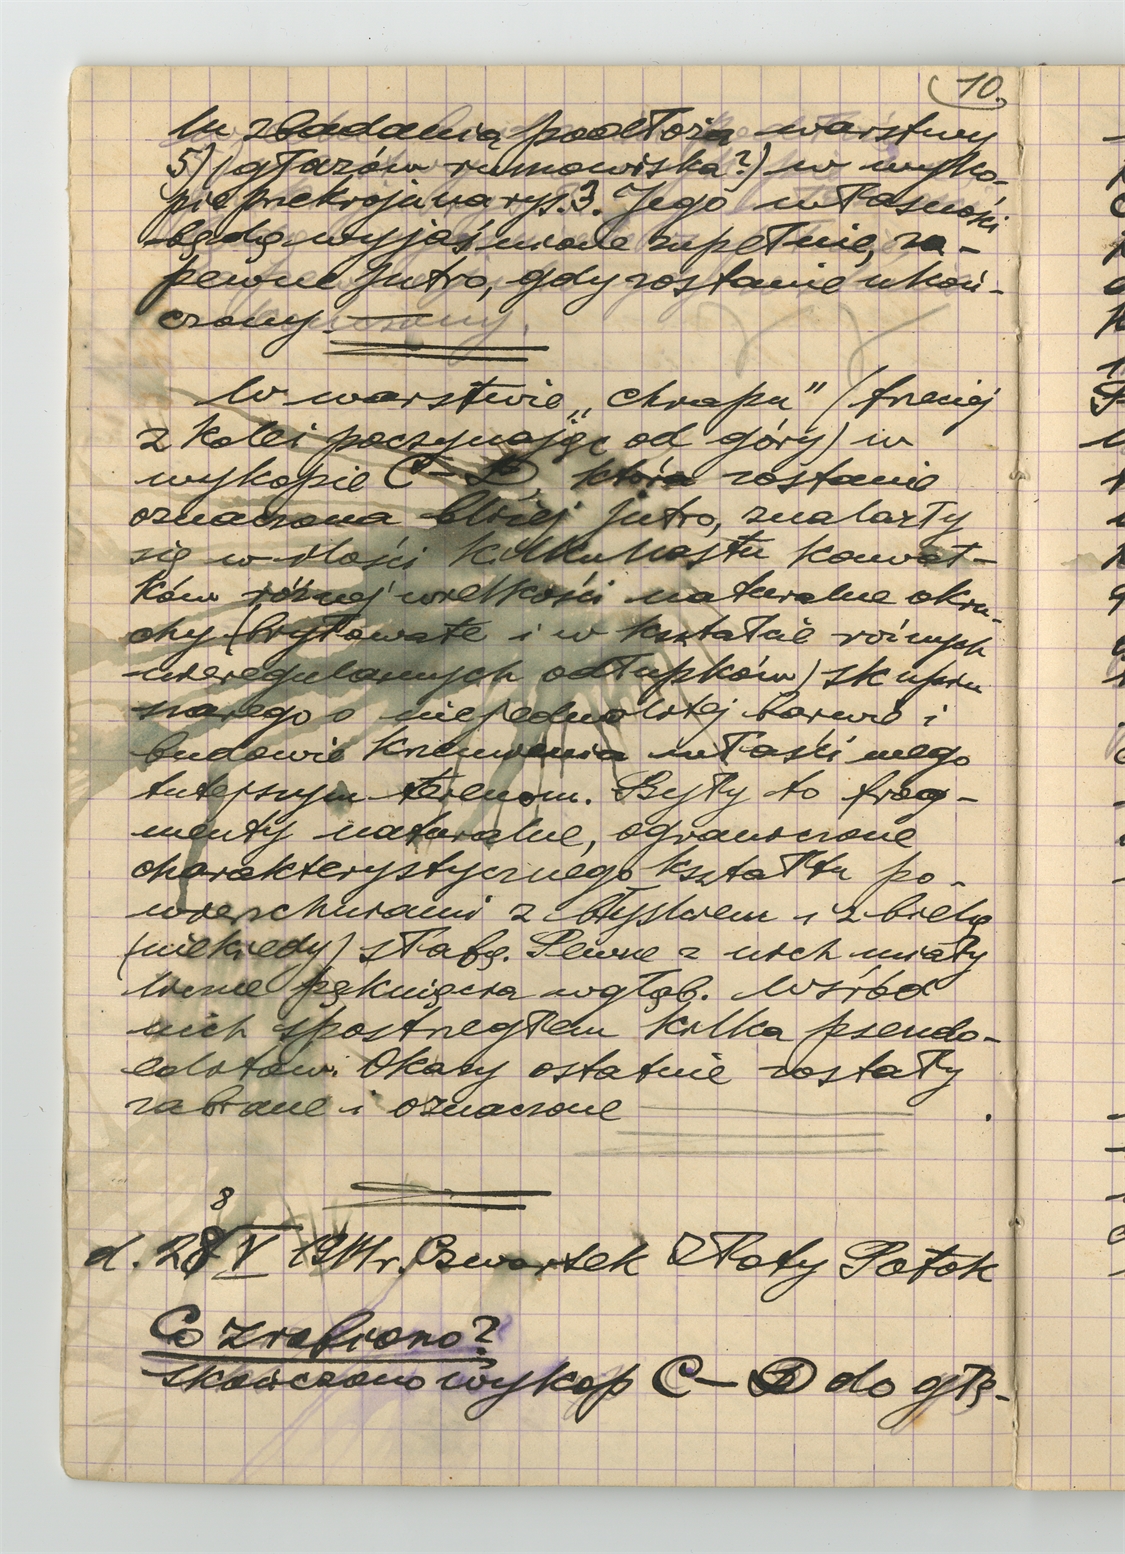 10.
lu zbadania podłoża warstwy
5) (głazów rumowiska?) w wyko-
pie przekroju na rys. 3. Jego własności
będą wyjaśnione zupełnie, za-
pewne jutro, gdy zostanie ukoń-
czony.
W warstwie „chrapu" (trzeciej
z kolei poczynając od góry) w
wykopie C–D, która zostanie
oznaczona bliżej jutro, znalazły
się w ilości kilkunastu kawał-
ków różnej wielkości naturalne okru-
chy (bryłowate i w kształcie różnych
nieregularnych odłupków) skupru
narego o niejednolitej barwie i
budowie krzemienia właściwego
tutejszym terenom. Były to frag-
menty naturalne, ograniczone
charakterystycznego kształtu po-
wierzchniami z błyskiem i z bielą
(niekiedy) słabą. Pewne z nich miały
liczne pęknięcia wgłąb. Wśród
nich spostrzegłem kilka pseudo-
eolitów. Okazy ostatnie zostały
zabrane i oznaczone
8
d. 28 V 1941 r. Czwartek Złoty Potok
Co zrobiono?
Skończono wykop C–D do głę-